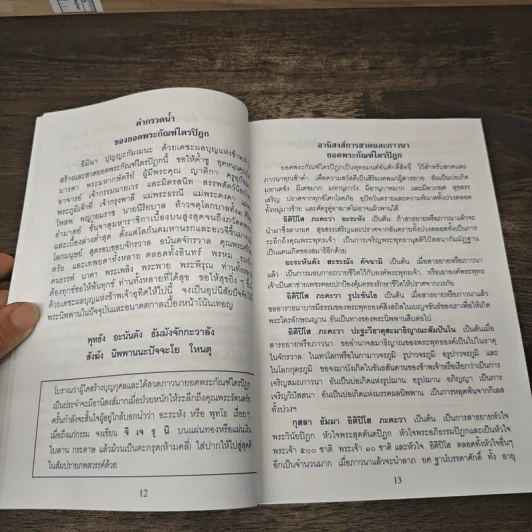 คำกรวดน้ำ
ของยอดพระกัณฑ์ไตรปิฎก
อิมินา ปุญญะกัมเมนะ ด้วยเดชะผลบุญแห่งข้าพเจ้า
สร้างและสวดยอดพระกัณฑ์ไตรปิฎกนี้ ขอให้ค้ำชู อุดหนุน
มารดา พระมหากษัตริย์ ผู้มีพระคุณ ญาติกา ครูอุปัชฌาย์
อาจารย์ เจ้ากรรมนายเวร และมิตรสนิท สรรพสัตว์น้อยใหญ่
พระภูมิเจ้าที่ เจ้ากรุงพาลี แม่พระธรณี แม่พระคงคา แม่พระ
โพสพ พญายมราช นายนิรียบาล ท้าวจตุโลกบาลทั้งสี่
อำมาตย์ ชั้นจาตุมหาราชิกาเบื้องบนสูงสุดจนถึงภวัคคพรหม
และเบื้องล่างต่ำสุด ตั้งแต่โลกันตมหานรกและอเวจีขึ้นมา
โลกมนุษย์ สุดรอบขอบจักรวาล อนันตจักรวาล คุณพระศรีรัตน
ตรัย และเทพยดาทั้งหลาย ตลอดทั้งอินทร์ พรหม ยม
คนธรรพ์ นาคา พระเพลิง พระพาย พระพิรุณ ท่านทั้งหลาย
ต้องทุกข์ขอให้พ้นทุกข์ ท่านทั้งหลายที่ได้สุข ขอให้สุขยิ่ง ๆ ขึ้นไป
ด้วยเดชะผลบุญแห่งข้าพเจ้าอุทิศให้ไปนี้ จงเป็นอุปนิสัยปัจจัย
พระนิพพานในปัจจุบันและอนาคตกาลเบื้องหน้าโน้นเทอญ
พุทธัง อะนันตัง ธัมมังจักกะวาลัง
สังฆัง นิพพานนะปัจจะโย โหนตุ
โบราณว่าผู้ใดสร้างบุญกุศลและได้สวดภาวนายอดพระกัณฑ์ไตรปิฎก
เป็นประจำจะมีอานิสงส์มากเมื่อป่วยหนักให้ระลึกถึงคุณพระรัตนตรัย
ครั้นกำลังจะสิ้นใจผู้อยู่ใกล้บอกนำว่า อะระหัง หรือ พุทโธ เรื่อย ๆ
เมื่อถึงแก่กรรม จงเขียน จิ เจ รุ นิ บนแผ่นทองหรือแผ่นเงิน
ใบลาน กระดาษ แล้วม้วนเป็นตะกรุด(ห้ามคลี่) ใส่ปากให้ไปสู่สุคติ
ในสัมปรายภพสวรรค์ด้วย
12
อานิสงส์การสวดและภาวนา
ยอดพระกัณฑ์ไตรปิฎก
ยอดพระกัณฑ์ไตรปิฎกเป็นพุทธมนต์อันศักดิ์สิทธิ์ ไว้สำหรับสวดและ
ภาวนาทุกเช้าค่ำ เพื่อความสวัสดีเป็นสิริมงคลแก่ผู้สาธยาย อันเป็นบ่อเกิด
มหาเตชัง มีเดชมาก มหานุภาวัง มีอานุภาพมาก และมีลาภยศ สุขสรร
เสริญ ปราศจากทุกข์โศกโรคภัย อุปัทวันตรายและความพินาศทั้งปวงตลอด
ทั้งหมู่มารร้าย และศัตรูคู่อาฆาตไม่อาจแผ้วพานได้
อิติปิโส ภะคะวา อะระหัง เป็นต้น ถ้าสาธยายหรือภาวนาแล้วจะ
นำมาซึ่งลาภยศ สุขสรรเสริญและปราศจากอันตรายทั้งปวงตลอดทั้งเป็นการ
ระลึกถึงคุณพระพุทธเจ้า เป็นการเจริญพระพุทธานุสติวิปัสสนากัมมัฏฐาน
เป็นแดนเกิดของสมาธิอีกด้วย
อะระหันตัง สะระณัง คัจฉามิ เป็นต้น เมื่อสาธยายหรือภาวนา
แล้ว เป็นการมอบกายถวายชีวิตไว้กับองค์พระพุทธเจ้า หรือเอาองค์พระพุทธ
เจ้าเป็นตาข่ายเพชรคอยปกป้องคุ้มครองรักษาชีวิตให้ปราศจากเวรภัย
อิติปิโส ภะคะวา รูปะขันโธ เป็นต้น เมื่อสาธยายหรือภาวนาแล้ว
ขออาราธนาบารมีธรรมของพระพุทธองค์สิงสถิตในเบญจขันธ์ของเราเพื่อให้เกิด
พระไตรลักษณญาณ อันเป็นทางของพระนิพพานสืบต่อไป
อิติปิโส ภะคะวา ปะฐะวีธาตุสะมาธิญาณะสัมปันโน เป็นต้นเมื่อ
สาธยายหรือภาวนา ขออำนาจสมาธิญาณของพระพุทธองค์เป็นไปในธาตุ
ในจักรวาล ในเทวโลกหรือในกามาวจรภูมิ รูปาวจรภูมิ อรูปาวจรภูมิ และ
ในโลกกุตรภูมิ ขอจงมาบังเกิดในขันธสันดานของข้าพเจ้าหรือเรียกว่าเป็นการ
เจริญสมถภาวนา อันเป็นบ่อเกิดแห่งรูปฌาน อรูปฌาน อภิญญา เป็นการ
เจริญวิปัสสนา อันเป็นบ่อเกิดแห่งมรรคผลนิพพาน เป็นการหลุดพ้นจากกิเลส
ทั้งปวงฯ
กุสลา ธัมมา อิติปิโส ภะคะวา เป็นต้น เป็นการสาธยายหัวใจ
พระวินัยปิฎก หัวใจพระสุตตันตปิฎก หัวใจพระอภิธรรมปิฎกและเป็นหัวใจ
พระเจ้า ๕๐๐ ชาติ พระเจ้า ๑๐ ชาติและหัวใจ อิติปิโส ตลอดทั้งหัวใจอื่นๆ
อีกเป็นจำนวนมาก เมื่อภาวนาแล้วจะนำลาภ ยศ ฐานันดรศักดิ์ ทั้ง อายุ
13